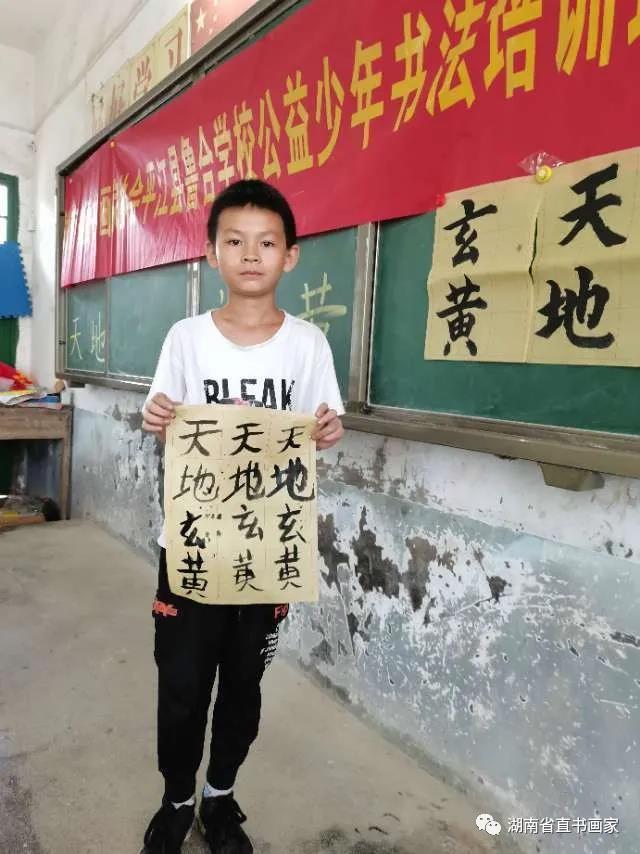 好学习
平江县鲁合学校公益少年书法培训
天地
营
天地
玄黄
BLEAK
天地玄黄
天地玄黄
天地玄黄
湖南省直书画家